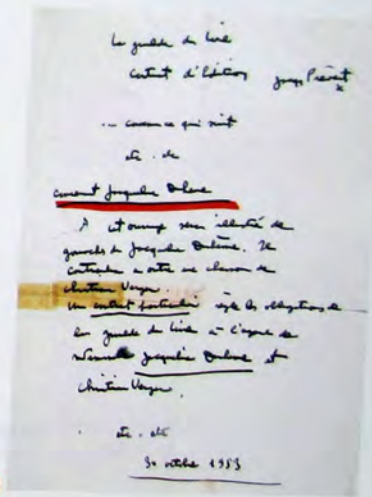 La guilde du livre
contrat d'édition Jacques Prévert
x
... comme ce qui suit
etc. de
concernant Jacqueline Duhême
A cet ouvrage sera illustré de
gouaches de Jacqueline Duhême. Il
contiendra en outre une chanson de
christian Verger.
Un contrat particulier règle les obligations de
la guilde du livre à l'égard de
Jacqueline Duhême et
christian Verger.
etc. etc
30 octobre 1953